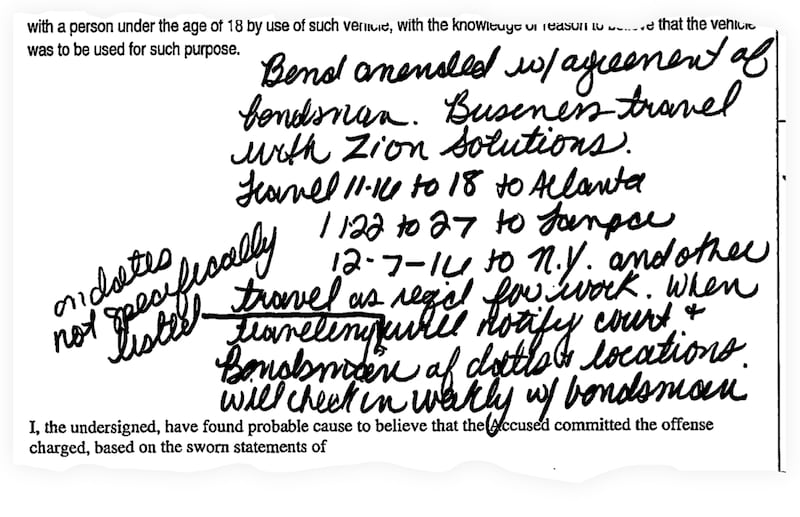 with a person under the age of 18 by use of such vehicle, with the knowledge or reason to that the vehicle
was to be used for such purpose.
Bond amended w/ agreement of
bondsman. Business travel
with Zion Solutions.
Travel 11-16 to 18 to Atlanta
11-22 to 27 to Tampa
12-7-16 to N.Y. and other
travel as req'd for work. When
on dates
not specifically
listed
traveling, will notify court &
Bondsman of dates & locations.
will check in weekly w/ bondsman
I, the undersigned, have found probable cause to believe that the Accused committed the offense
charged, based on the sworn statements of